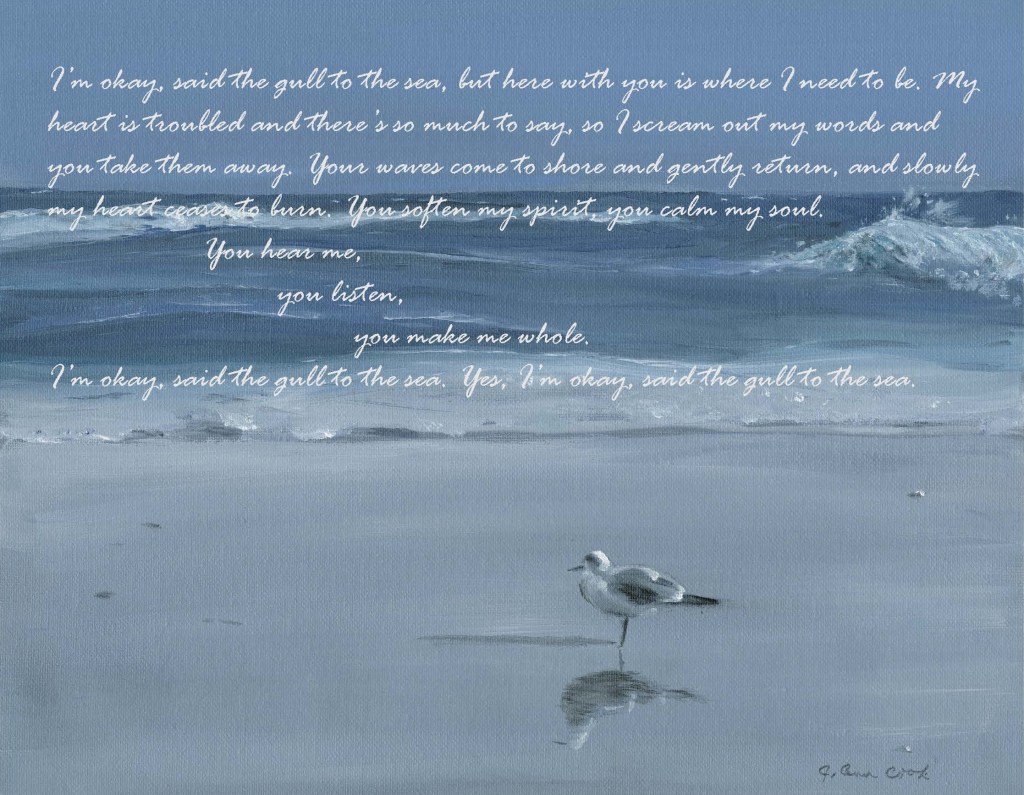 I'm okay, said the gull to the sea, but here with you is where I need to be. My
heart is troubled and there's so much to say, so I scream out my words and
you take them away. Your waves come to shore and gently return, and slowly
my heart ceases to burn. You soften my spirit, you calm my soul.
You hear me,
you listen,
you make me whole.
I'm okay, said the gull to the sea. Yes, I'm okay, said the gull to the sea.
J. Ann Cook